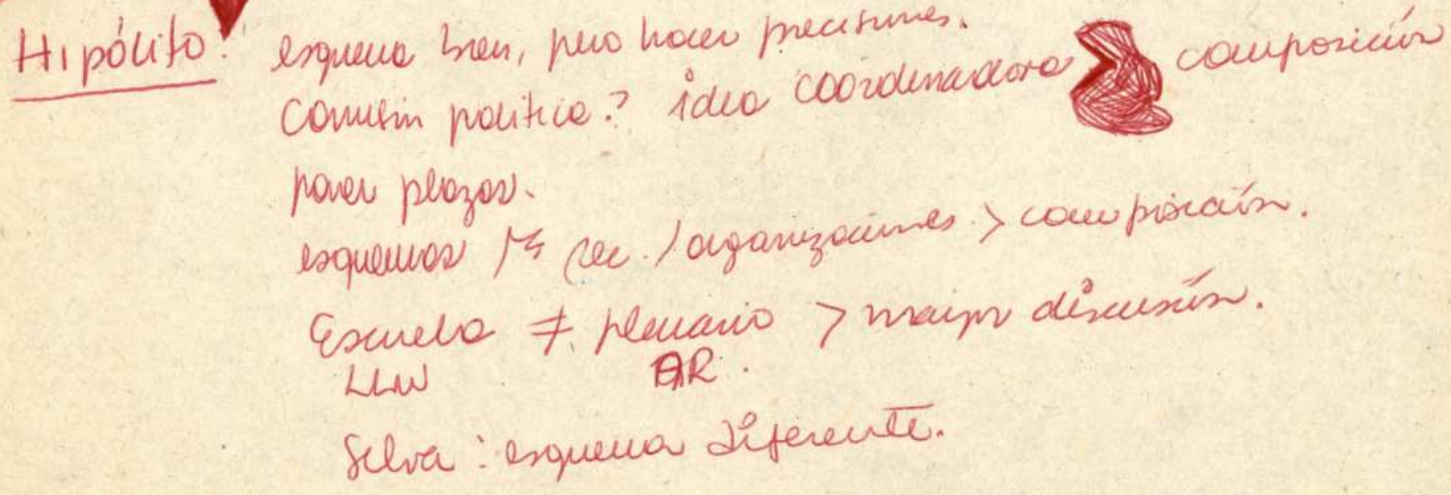 Hipólito: esquema bien, pero hacer precisiones.
Comisión política? idea coordinadora > composición
poner plazos.
esquemas / organizaciones > composición.
Escuela ≠ plenario > mayor discusión.
AR.
Selva: esquema diferente.